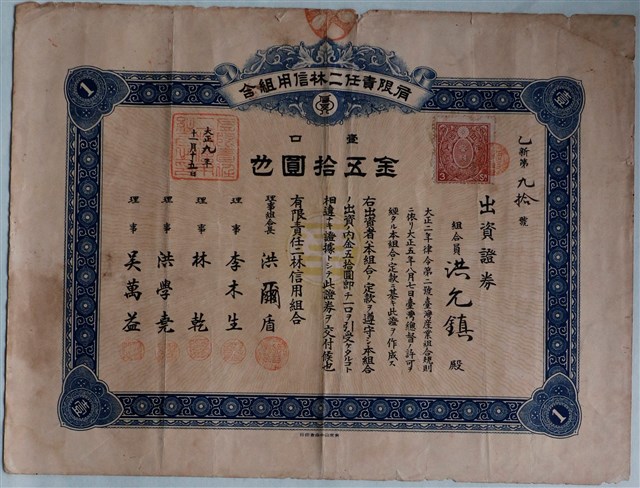 有限責任二林信用組合
壹口
金五拾圓也
乙新第九拾號
出資證券
組合員 洪允鎮 殿
大正二年律令第二號臺灣產業組合規則
ニ依リ大正五年八月七日臺灣總督ノ許可ヲ
經タル本組合ノ定款ニ基キ此證ヲ作成ス
右出資者ハ本組合ノ定款ヲ遵守シ本組合
ノ出資ノ內金五拾圓即チ一口ヲ引受ケタルコト
相違ナキ證據トシテ此證券ヲ交付候也
大正九年
十一月十五日
有限責任二林信用組合
理事組合長 洪爾盾
理事 李木生
理事 林乾
理事 洪學堯
理事 吴萬益
1
壹
壹
1
3 Sn